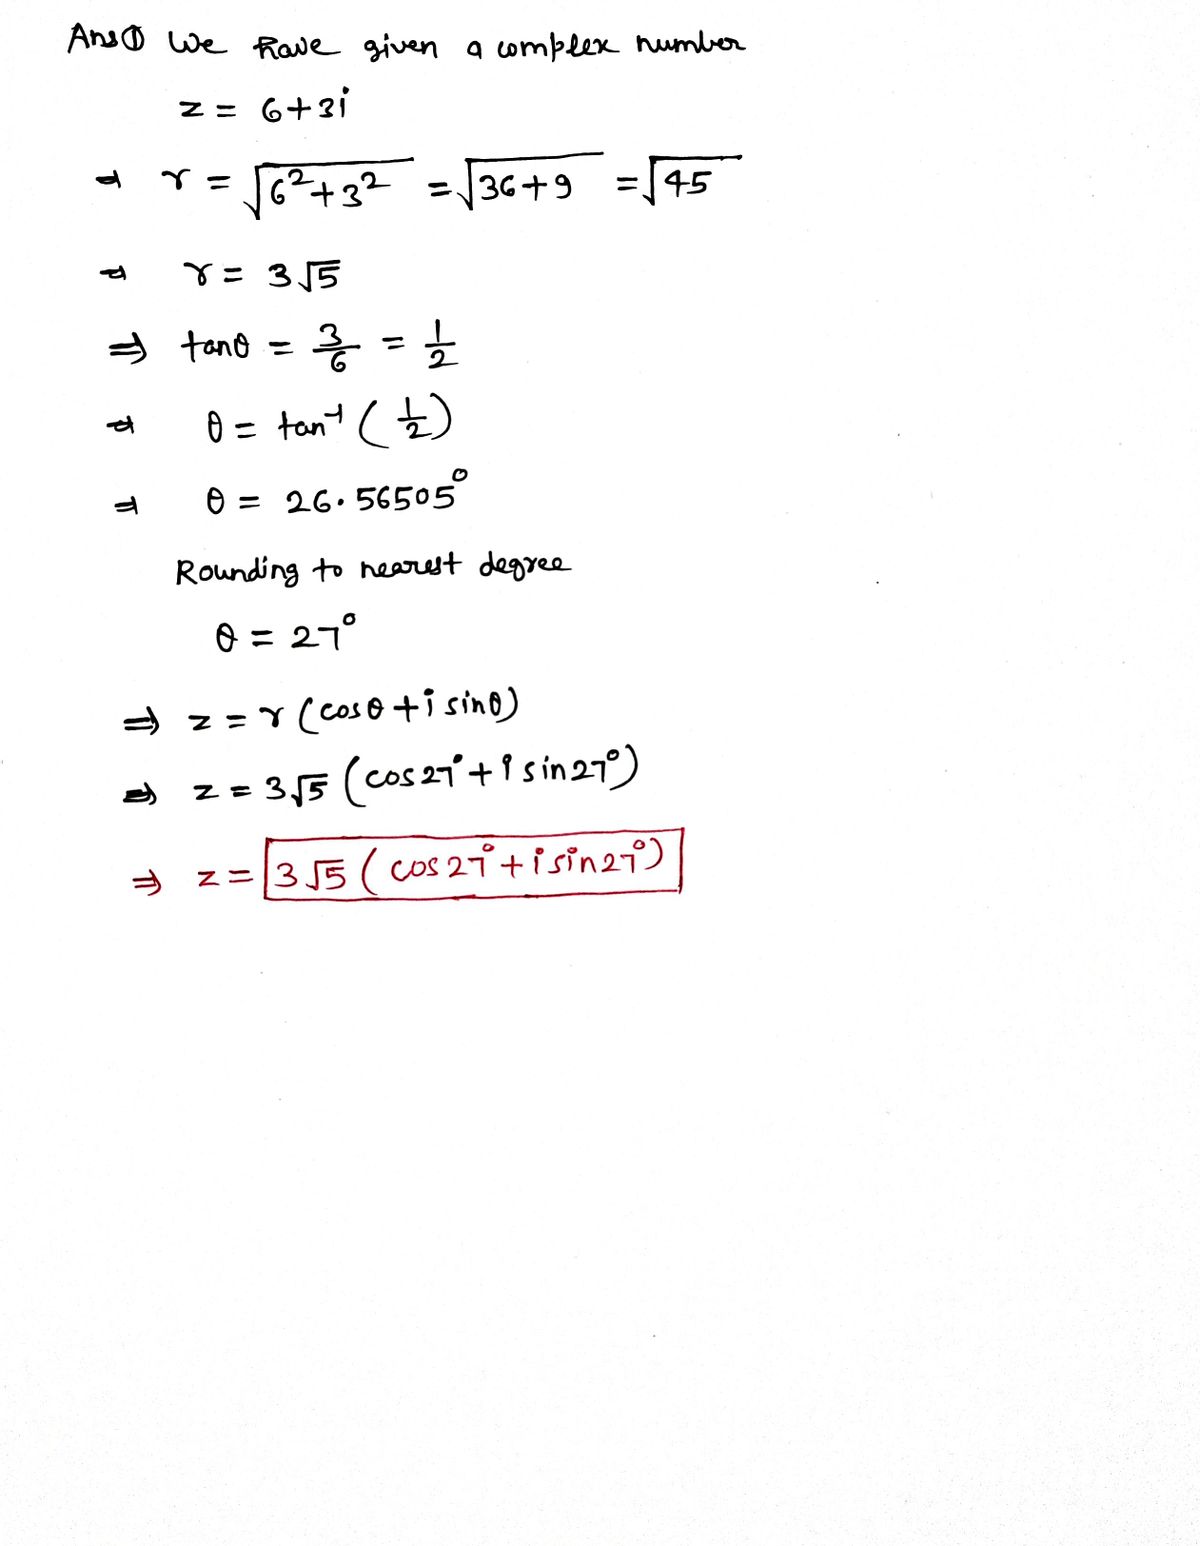 Ans① We have given a complex number
z = 6+3i
⇒ r = √(6²+3²) = √(36+9) = √45
⇒ r = 3√5
⇒ tanθ = 3/6 = 1/2
⇒ θ = tan⁻¹(1/2)
⇒ θ = 26.56505°
Rounding to nearest degree
θ = 27°
⇒ z = r (cosθ + i sinθ)
⇒ z = 3√5 (cos27° + i sin27°)
⇒ z = 3√5 (cos27° + i sin27°)